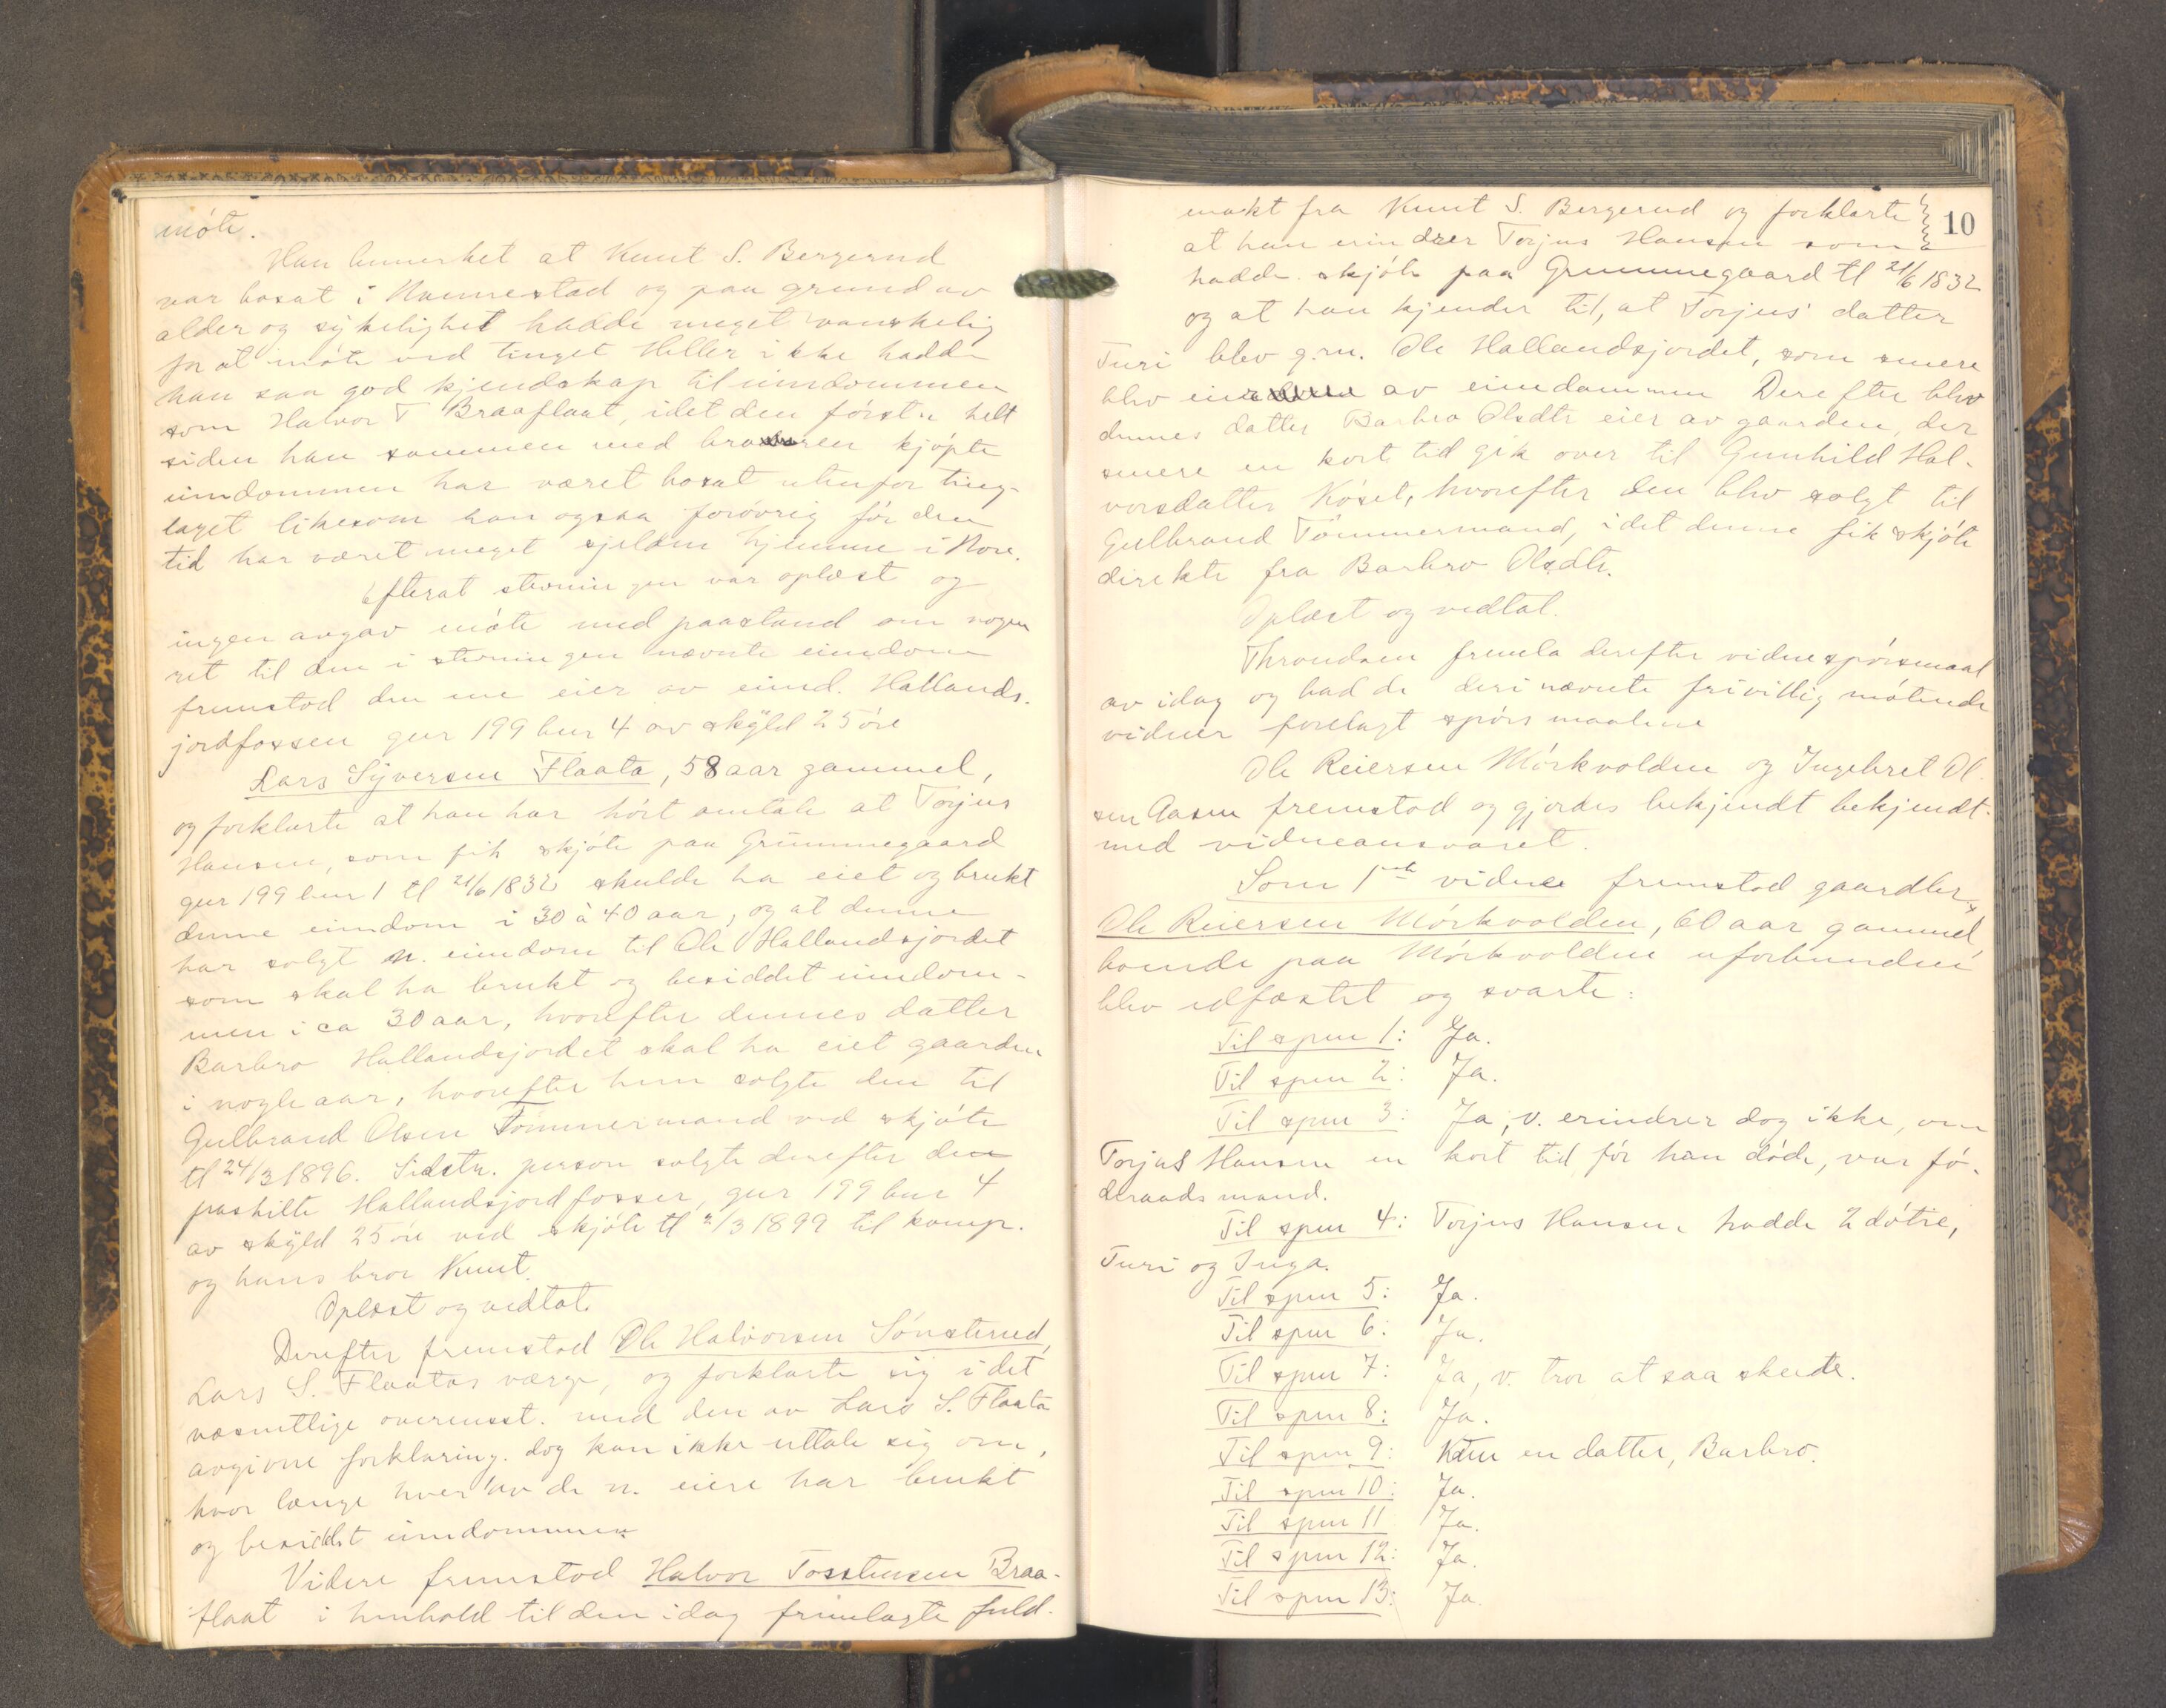 möte.
Han bemerket at Knut S. Bergerud
var bosat i Numestad og paa grund av
alder og sykelighet hadde meget vanskelig
for at möte ved tinget Heller ikke hadde
han saa god kjendskap til eiendommen
som Halvor T Braaflaat, idet den förstn helt
siden han sammen med broren kjöpte
eiendommen har været bosat utenfor ting-
laget likesom han ogsaa forövrig för den
tid har været meget sjelden hjemme i Nore.
Efterat stevningen var oplæst og
ingen avgav möte med paastand om nogen
ret til den i stevningen nævnte eiendom
fremstod den ene eier av eiend. Hallands-
jordfossen gnr 199 bnr 4 av skyld 25 öre
Lars Syversen Flaata, 58 aar gammel,
og forklarte at han har hört omtale at Torjus
Hansen, som fik skjöte paa Grimmegaard
gnr 199 bnr 1 tl 21/6 1832 skulde ha eiet og brukt
denne eiendom i 30 à 40 aar, og at denne
har solgt n. eiendom til Ole Hallandsjordet
som skal ha brukt og besiddet eiendom-
men i ca 30 aar, hvorefter dennes datter
Barbro Hallandsjordet skal ha eiet gaarden
i nogle aar, hvorefter hun solgte den til
Gulbrand Olsen Tömmermand ved skjöte
tl 24/3 1896. Sidstn. person solgte derefter den
fraskilte Hallandsjordfosser, gnr 199 bnr 4
av skyld 25 öre ved skjöte tl 2/3 1899 til komp.
og hans bror Knut.
Oplæst og vedtat.
Derefter fremstod Ole Halvorsen Sönsterud,
Lars S. Flaatas værge, og forklarte sig i det
væsentlige overensst. med den av Lars S. Flaata
avgivne forklaring. dog kan ikke uttale sig om,
hvor længe hver av de n. eiere har brukt
og besiddet eiendommen
Videre fremstod Halvor Tosstensen Braa-
flaat i henhold til den idag fremlagte fuld-
10
makt fra Knut S. Bergerud og forklarte
at han erindrer Torjus Hansen som
hadde skjöte paa Grimmegaard tl 21/6 1832
og at han kjender til, at Torjus' datter
Turi blev g.m. Ole Hallandsjordet, som senere
blev eier av eiendommen Derefter blev
dennes datter Barbro Olsdtr eier av gaarden, der
senere en kort tid gik over til Gunhild Hal-
vorsdatter Köset, hvorefter den blev solgt til
Gulbrand Tömmermand, idet denne fik skjöte
direkte fra Barbro Olsdtr.
Oplæst og vedtat.
Throndsen fremla derefter vidnespörsmaal
av idag og bad de deri nævnte frivillig mötende
vidner forelagt spörsmaalene
Ole Reiersen Mörkvolden og Ingebret Ol-
sen Aasen fremstod og gjordes bekjendt bekjendt
med vidneansvaret.
Som 1ste vidne fremstod gaardbr
Ole Reiersen Mörkvolden, 60 aar gammel,
boende paa Mörkvolden uforbunden
blev edfæstet og svarte:
Til spm 1: Ja.
Til spm 2: Ja.
Til spm 3: Ja, v. erindrer dog ikke, om
Torjus Hansen en kort tid för han döde, var fö-
deraadsmand.
Til spm 4: Torjus Hansen hadde 2 dötre,
Turi og Inga.
Til spm 5: Ja.
Til spm 6: Ja.
Til spm 7: Ja, v. tror at saa skedte.
Til spm 8: Ja.
Til spm 9: Kun en datter, Barbro.
Til spm 10: Ja.
Til spm 11 Ja.
Til spm 12: Ja.
Til spm 13: Ja.